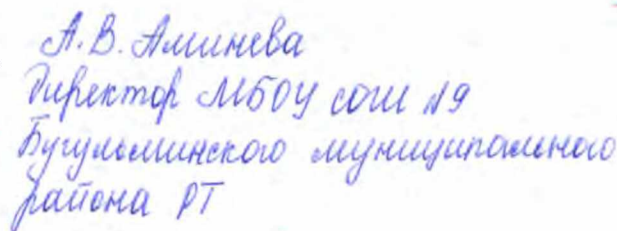 А.В. Аминева
Директор МБОУ СОШ №9
Бугульминского муниципального
района РТ